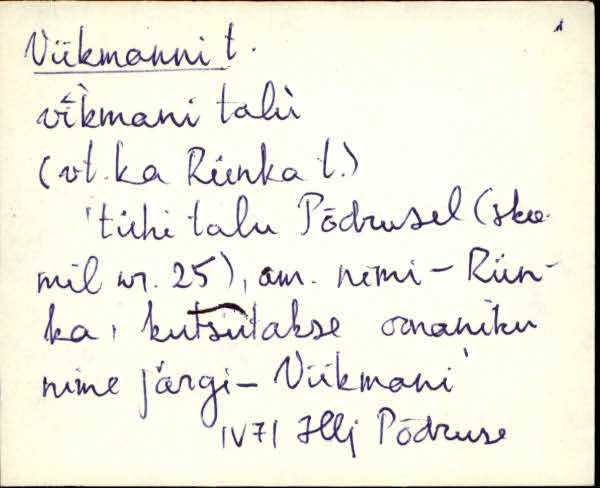 Viikmanni t.
vikmani talu
(vt. ka Rünka t.)
'tühi talu Põdrusel (skee-
mil nr. 25), am. nimi – Rün-
ka, kutsutakse omaniku
nime järgi – Viikmani'
IV 71 Hlj Põdruse